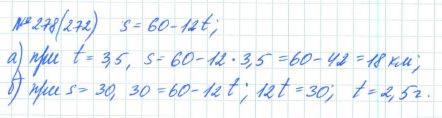 №278(272) s=60-12t;
а) при t=3,5, s=60-12·3,5=60-42=18 км;
б) при s=30, 30=60-12t; 12t=30; t=2,5 г.